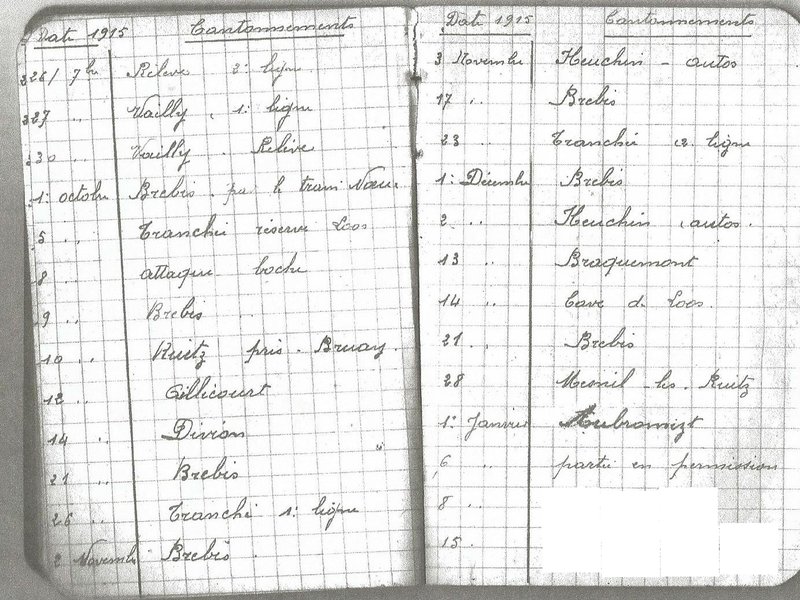 Date 1915 Cantonnements
226/7bre Relève 2e ligne
227 " Vailly, 1e ligne
230 " Vailly. Relève
1e octobre Brebis. par le train Nœu
5 " Tranchée réserve Loos
8 " attaque boche
9 " Brebis
10 " Ruitz près. Bruay.
12 " Gillicourt
14 " Divion
21 " Brebis
26 " Tranchée 1e ligne
2 Novembre Brebis.
Date 1915 Cantonnements
3 Novembre Heuchin - autos
17 " Brebis
23 " Tranchée 2e ligne
1e Décembre Brebis
2 " Heuchin autos.
13 " Braquemont
14 " Cave de Loos.
21 " Brebis
28 Mesnil-les-Ruitz
1e Janvier
6 " partie en permission
8 "
15 "